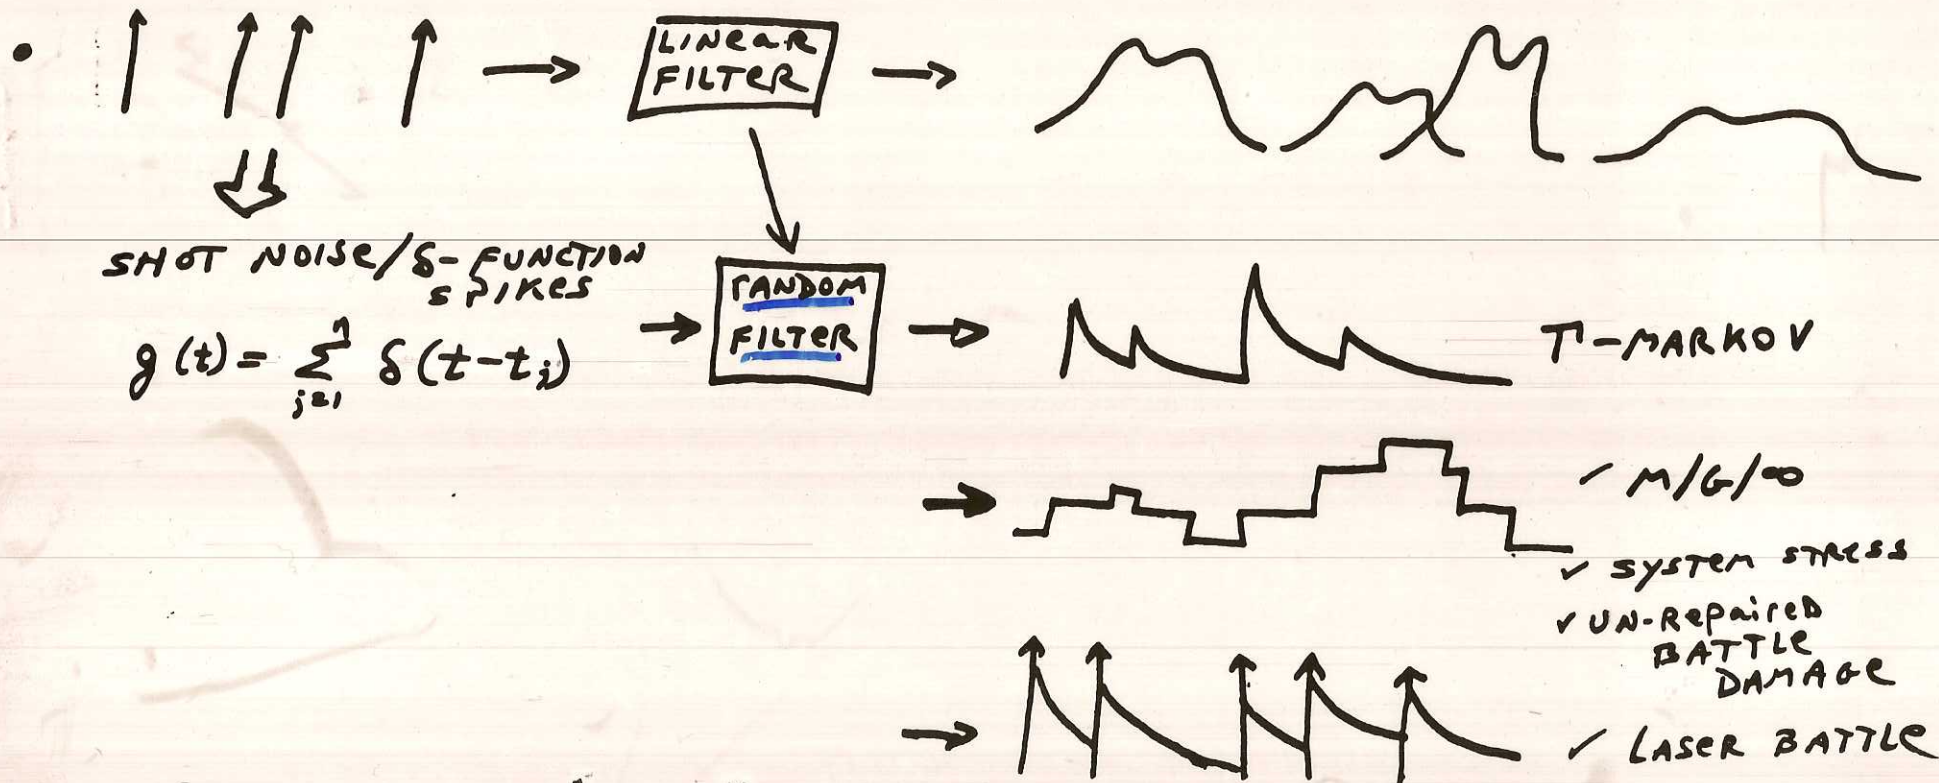 LINEAR
FILTER
SHOT NOISE/δ-FUNCTION
SPIKES
g(t) = Σ_{j=1}^{n} δ(t-t_j)
RANDOM
FILTER
Γ-MARKOV
✓ M/G/∞
✓ SYSTEM STRESS
✓ UN-REPAIRED
BATTLE
DAMAGE
✓ LASER BATTLE